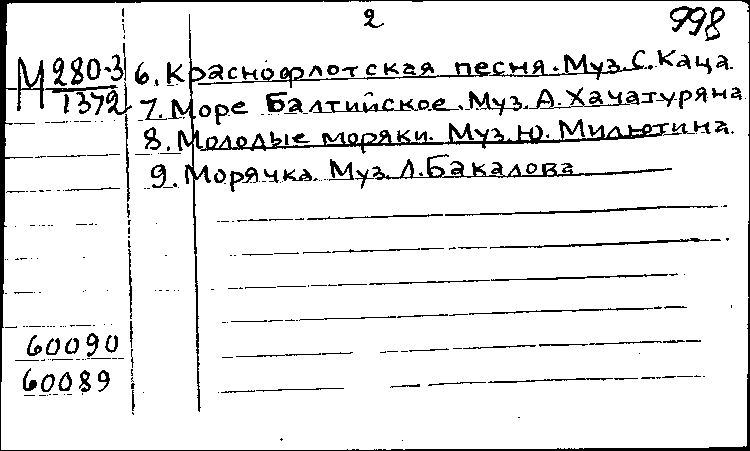 2
998
М 280-3/1372
6. Краснофлотская песня. Муз. С. Каца.
7. Море Балтийское. Муз. А. Хачатуряна
8. Молодые моряки. Муз. Ю. Милютина.
9. Морячка. Муз. Л. Бакалова
60090
60089